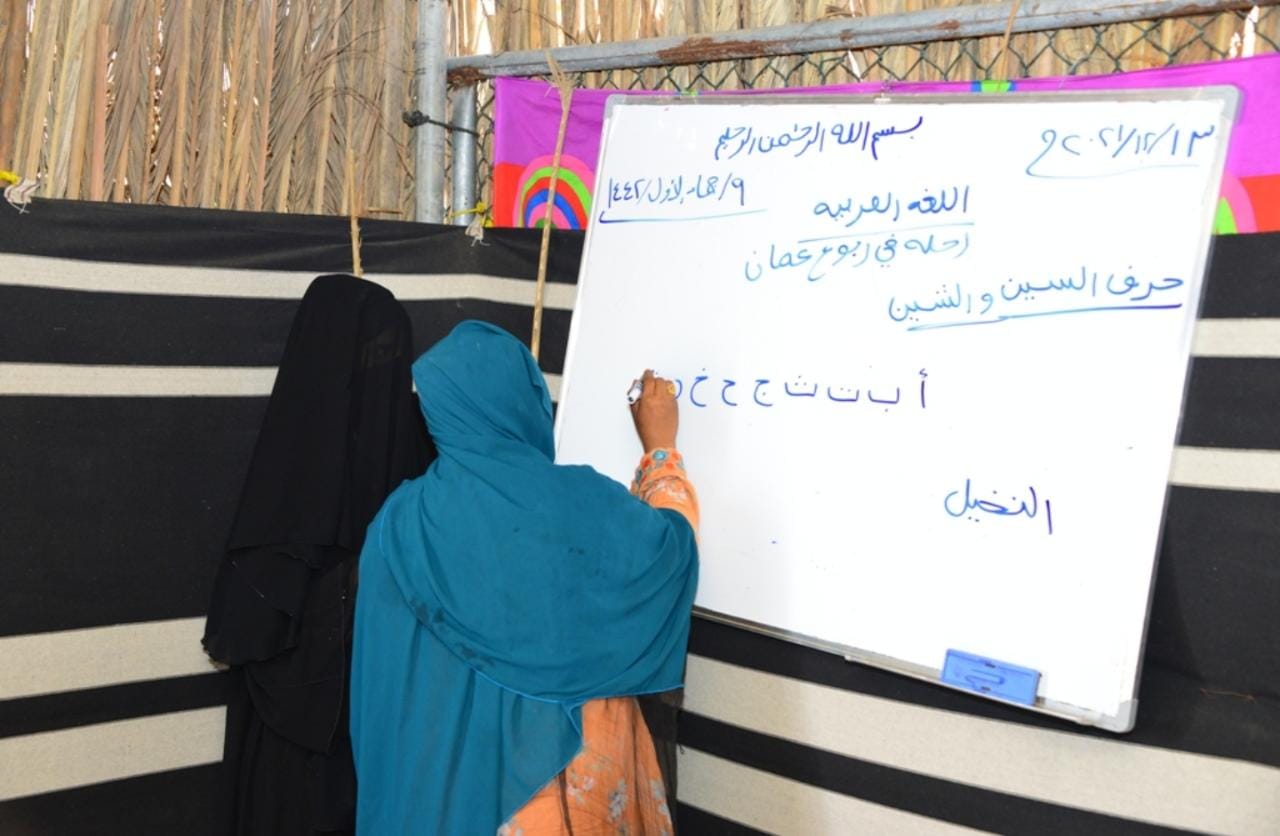 بسم الله الرحمن الرحيم
٢٠٢١/١٢/١٣ م
٩/جماد الأول/١٤٤٢
اللغه العربيه
رحله في ربوع عمان
حرف السين والشين
أ ب ت ث ج ح خ د
النخيل